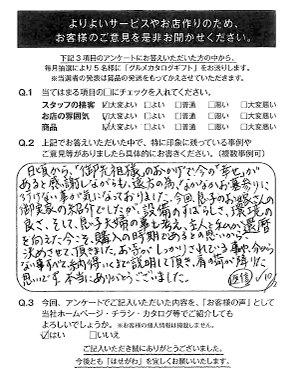 よりよいサービスやお店作りのため、
お客様のご意見を是非お聞かせください。
下記3項目のアンケートにお答えいただいた方の中から、
毎月抽選により5名様に「グルメカタログギフト」をお送りします。
※当選者の発表は賞品の発送をもってかえさせていただきます。
Q.1 当てはまる項目の□にチェックを入れてください。
スタッフの接客 ☑大変よい □よい □普通 □悪い □大変悪い
お店の雰囲気 ☑大変よい □よい □普通 □悪い □大変悪い
商品 ☑大変よい □よい □普通 □悪い □大変悪い
Q.2 上記でお答えいただいた中で、特に印象に残っている事例や
ご意見等がありましたら具体的にお書きください。(複数事例可)
日頃から、「御先祖様」のおかげで今の「幸せ」が
あると感謝しながらも、遠方の為、なかなかお墓参りに
行けない事が気になっておりました。今回、息子のお嫁さんの
御実家の紹介でしたが、設備のすばらしさ、環境の
良さ、そして、息子夫婦の事も考え、主人と私が還暦
を向えた今こそ、購入の時期であると思い
決めさせて頂きました。お店の、しっかりされている事や、分から
ない事すべて納得いくまで説明して頂き、肩の荷が降りた
思いです。本当にありがとうございました。
Q.3 今回、アンケートでご記入いただいた内容を、「お客様の声」として
当社ホームページ・チラシ・カタログ等でご紹介しても
よろしいでしょうか。※お客様の個人情報は掲載しません。
☑はい □いいえ
ご記入いただき誠にありがとうございました。
今後とも「はせがわ」を宜しくお願いいたします。